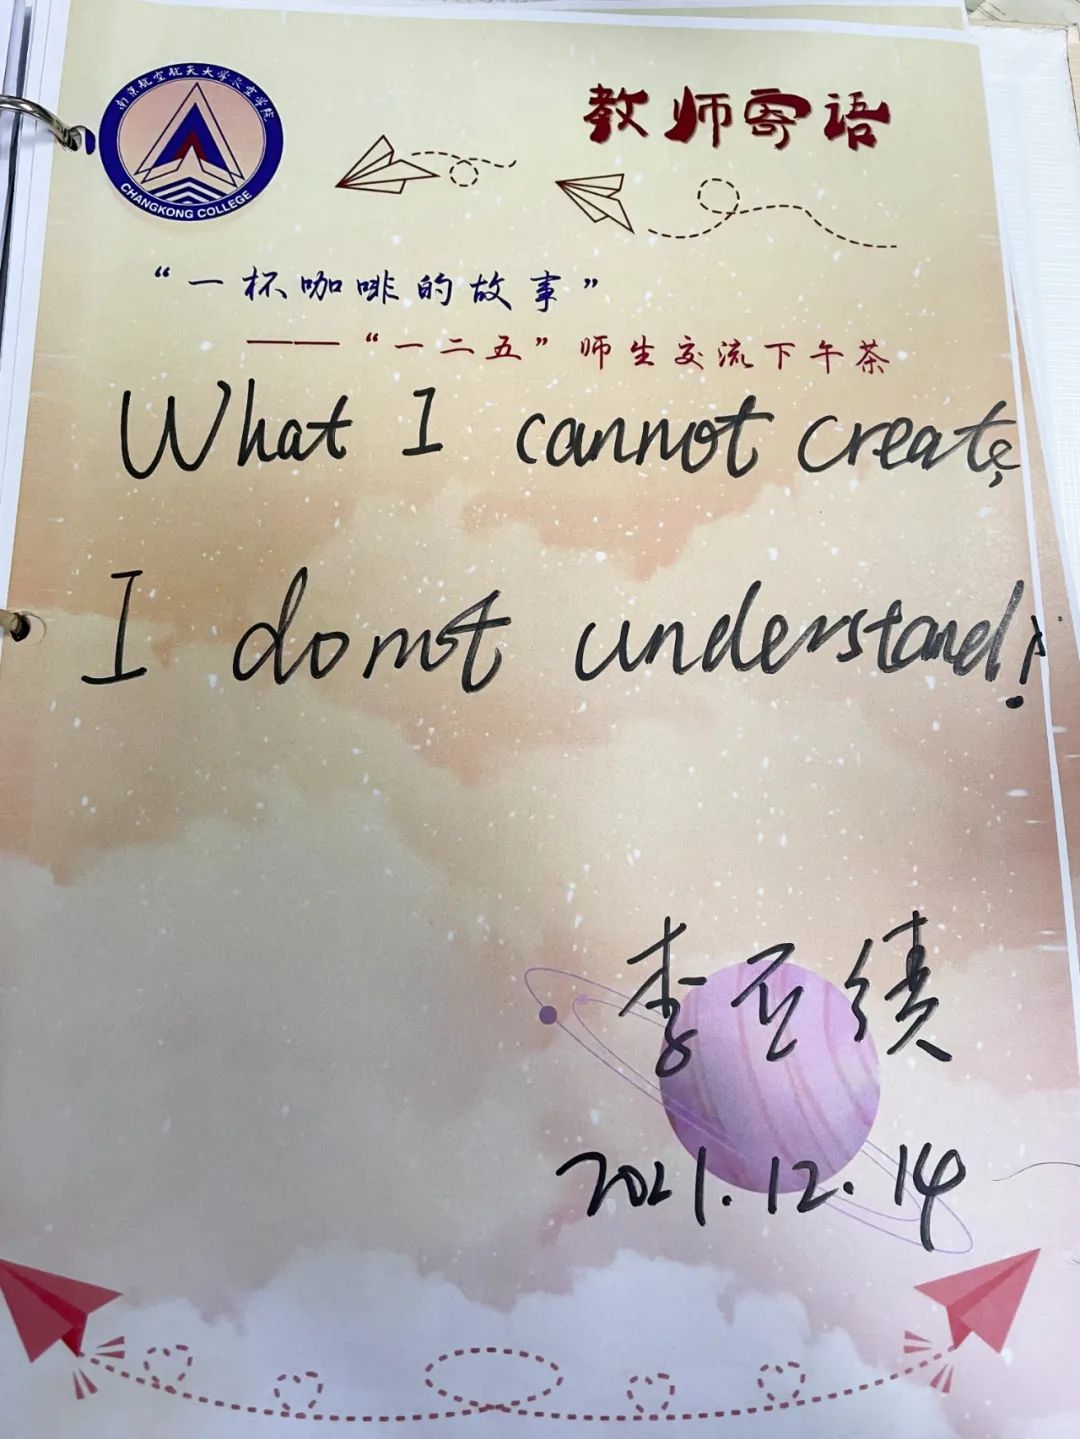 南京航空航天大学长空学院
CHANGKONG COLLEGE
教师寄语
“一杯咖啡的故事”
——“一二五”师生交流下午茶
What I cannot create,
I do not understand!
李亚绩
2021.12.14